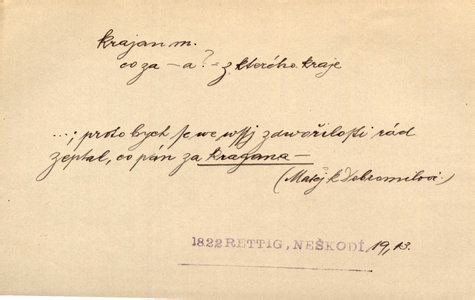 krajan m.
co za – a? = z kterého kraje
...; proto bych se we wssj zdwořilosti rád
zeptal, co pán za kragana –
(Matěj k Dobromilovi.)
1822 RETTIG, NEŠKODÍ, 19, 13.